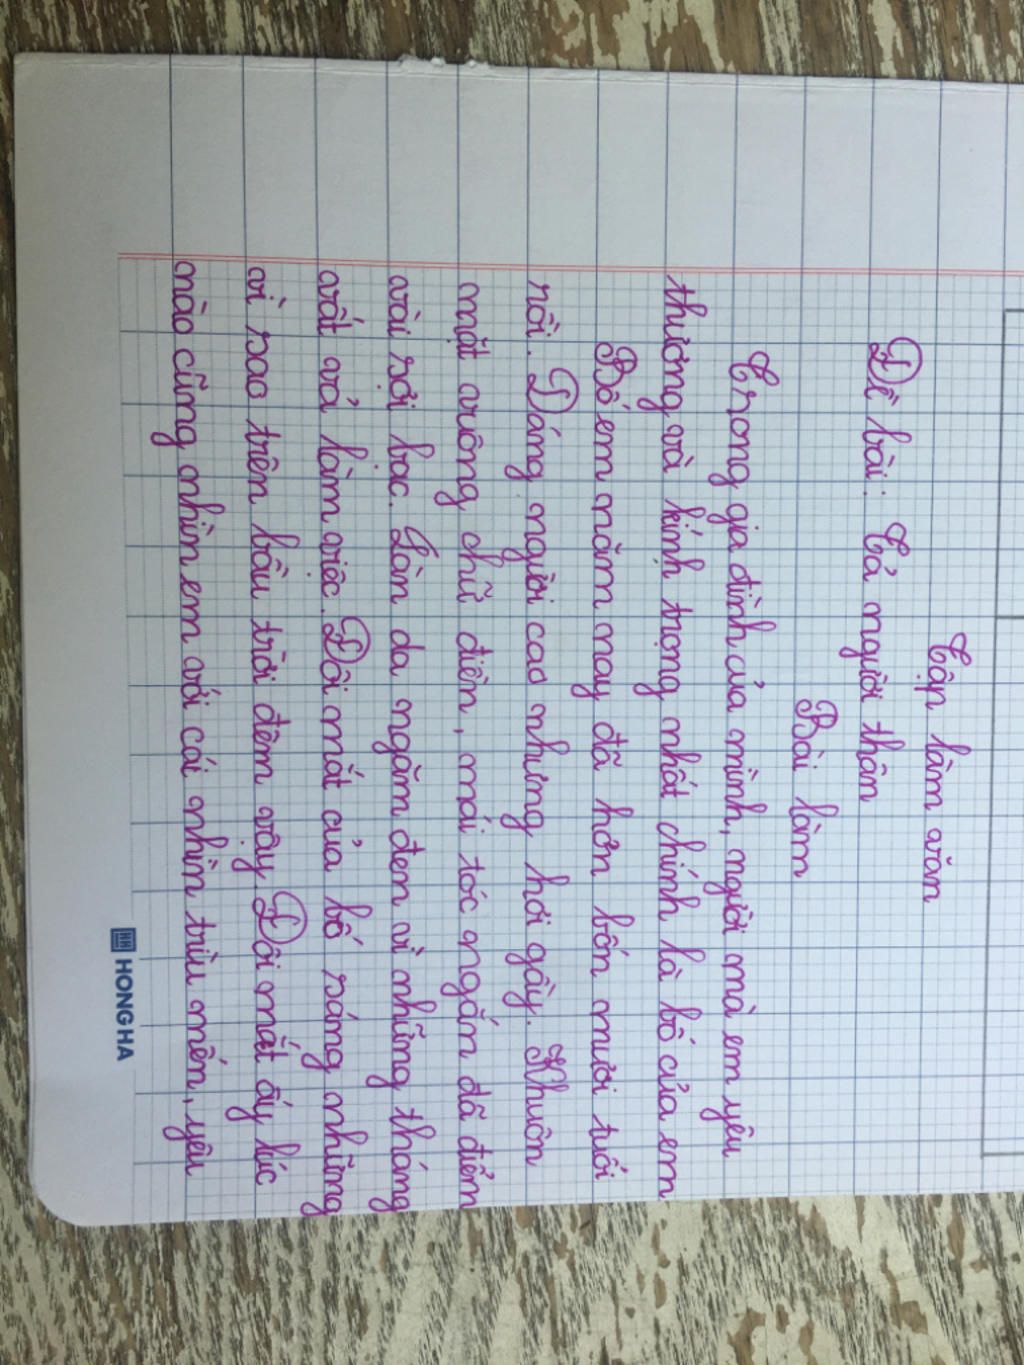 Tập làm văn
Đề bài: Tả người thân
Bài làm
Trong gia đình của mình, người mà em yêu
thương và kính trọng nhất chính là bố của em
Bố em năm nay đã hơn bốn mươi tuổi
rồi. Dáng người cao nhưng hơi gầy. Khuôn
mặt vuông chữ điền, mái tóc ngắn đã điểm
vài sợi bạc. Làn da ngăm đen vì những tháng
vất vả làm việc. Đôi mắt của bố sáng những
vì sao trên bầu trời đêm vậy. Đôi mắt ấy lúc
nào cũng nhìn em với cái nhìn trìu mến, yêu
HONG HA